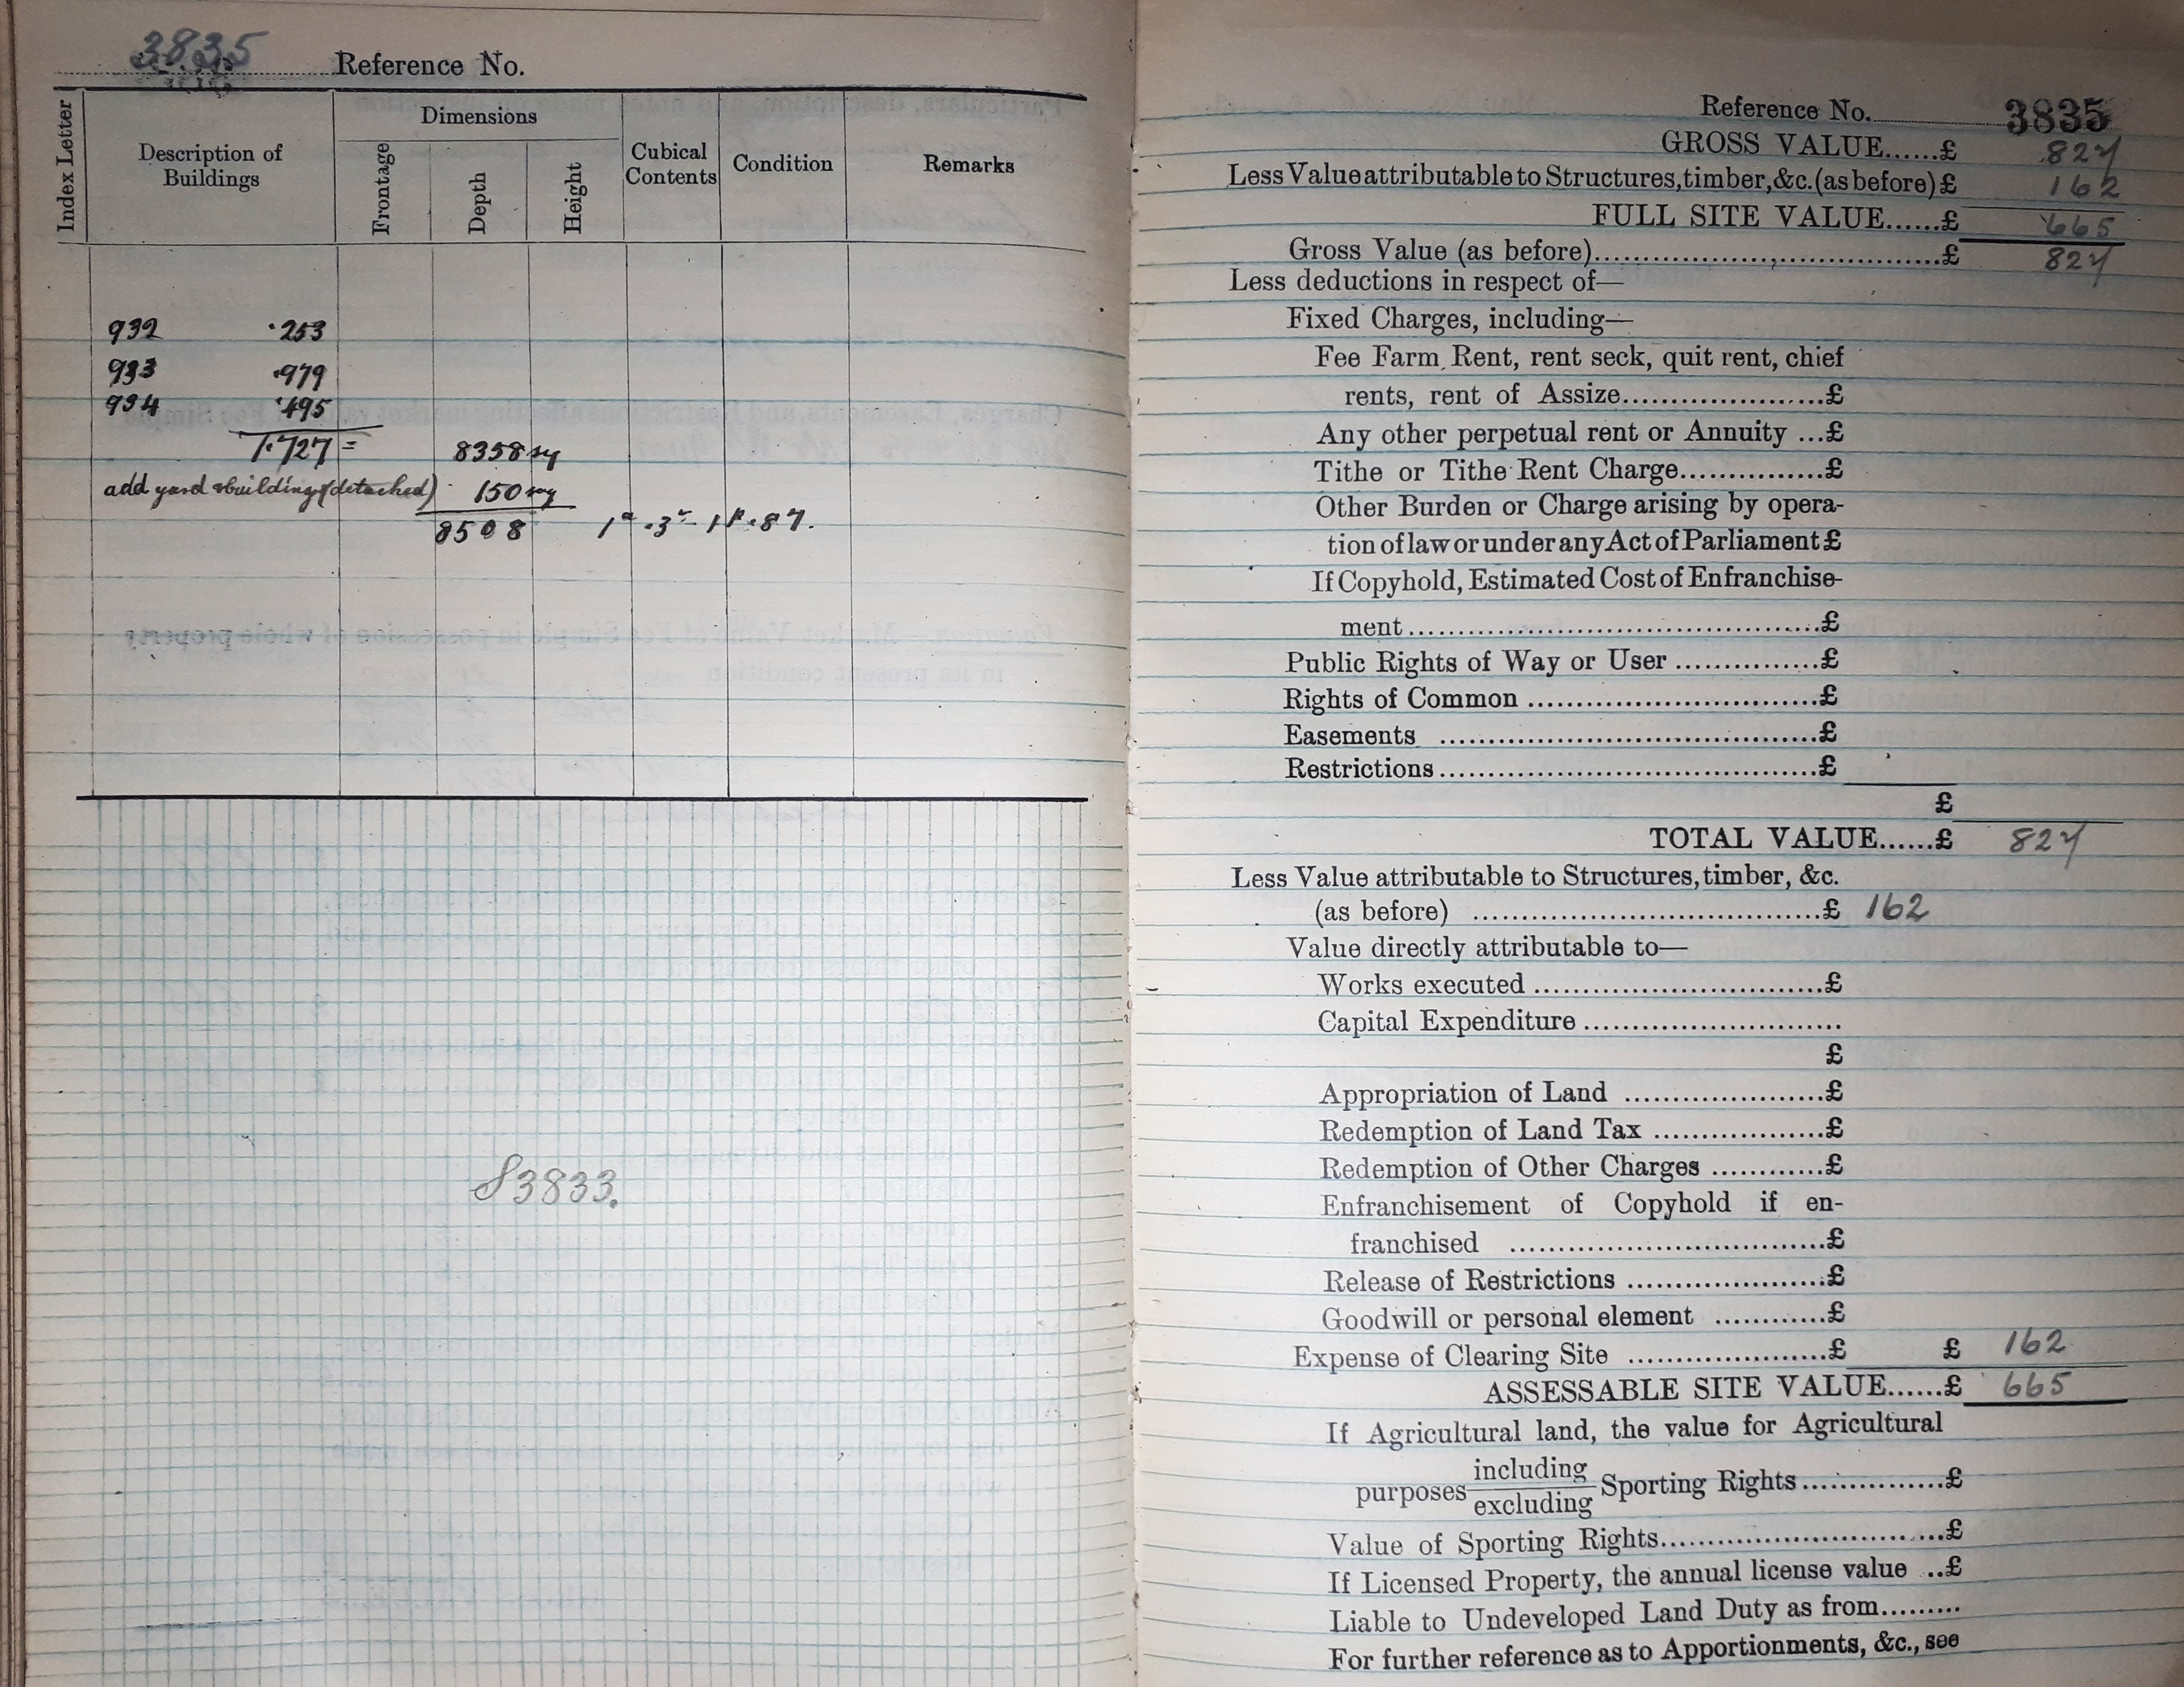 3835 Reference No.
Index Letter
Description of Buildings
Dimensions
Frontage
Depth
Height
Cubical Contents
Condition
Remarks
932 ·253
933 ·979
934 ·495
1·727 = 8358 sy
add yard & buildings (detached) 150 sy
8508 1ª·3ʳ·1ᵖ·87.
83833.
Reference No. 3835
GROSS VALUE......£ 827
Less Value attributable to Structures, timber, &c. (as before) £ 162
FULL SITE VALUE......£ 665
Gross Value (as before)..........£ 827
Less deductions in respect of—
Fixed Charges, including—
Fee Farm Rent, rent seck, quit rent, chief
rents, rent of Assize..........£
Any other perpetual rent or Annuity ...£
Tithe or Tithe Rent Charge..........£
Other Burden or Charge arising by opera-
tion of law or under any Act of Parliament £
If Copyhold, Estimated Cost of Enfranchise-
ment..........£
Public Rights of Way or User ..........£
Rights of Common ..........£
Easements ..........£
Restrictions..........£
£
TOTAL VALUE......£ 827
Less Value attributable to Structures, timber, &c.
(as before) ..........£ 162
Value directly attributable to—
Works executed ..........£
Capital Expenditure ..........
£
Appropriation of Land ..........£
Redemption of Land Tax ..........£
Redemption of Other Charges ..........£
Enfranchisement of Copyhold if en-
franchised ..........£
Release of Restrictions ..........£
Goodwill or personal element ..........£
Expense of Clearing Site ..........£ £ 162
ASSESSABLE SITE VALUE......£ 665
If Agricultural land, the value for Agricultural
purposes including excluding Sporting Rights..........£
Value of Sporting Rights..........£
If Licensed Property, the annual license value ..£
Liable to Undeveloped Land Duty as from.........
For further reference as to Apportionments, &c., see